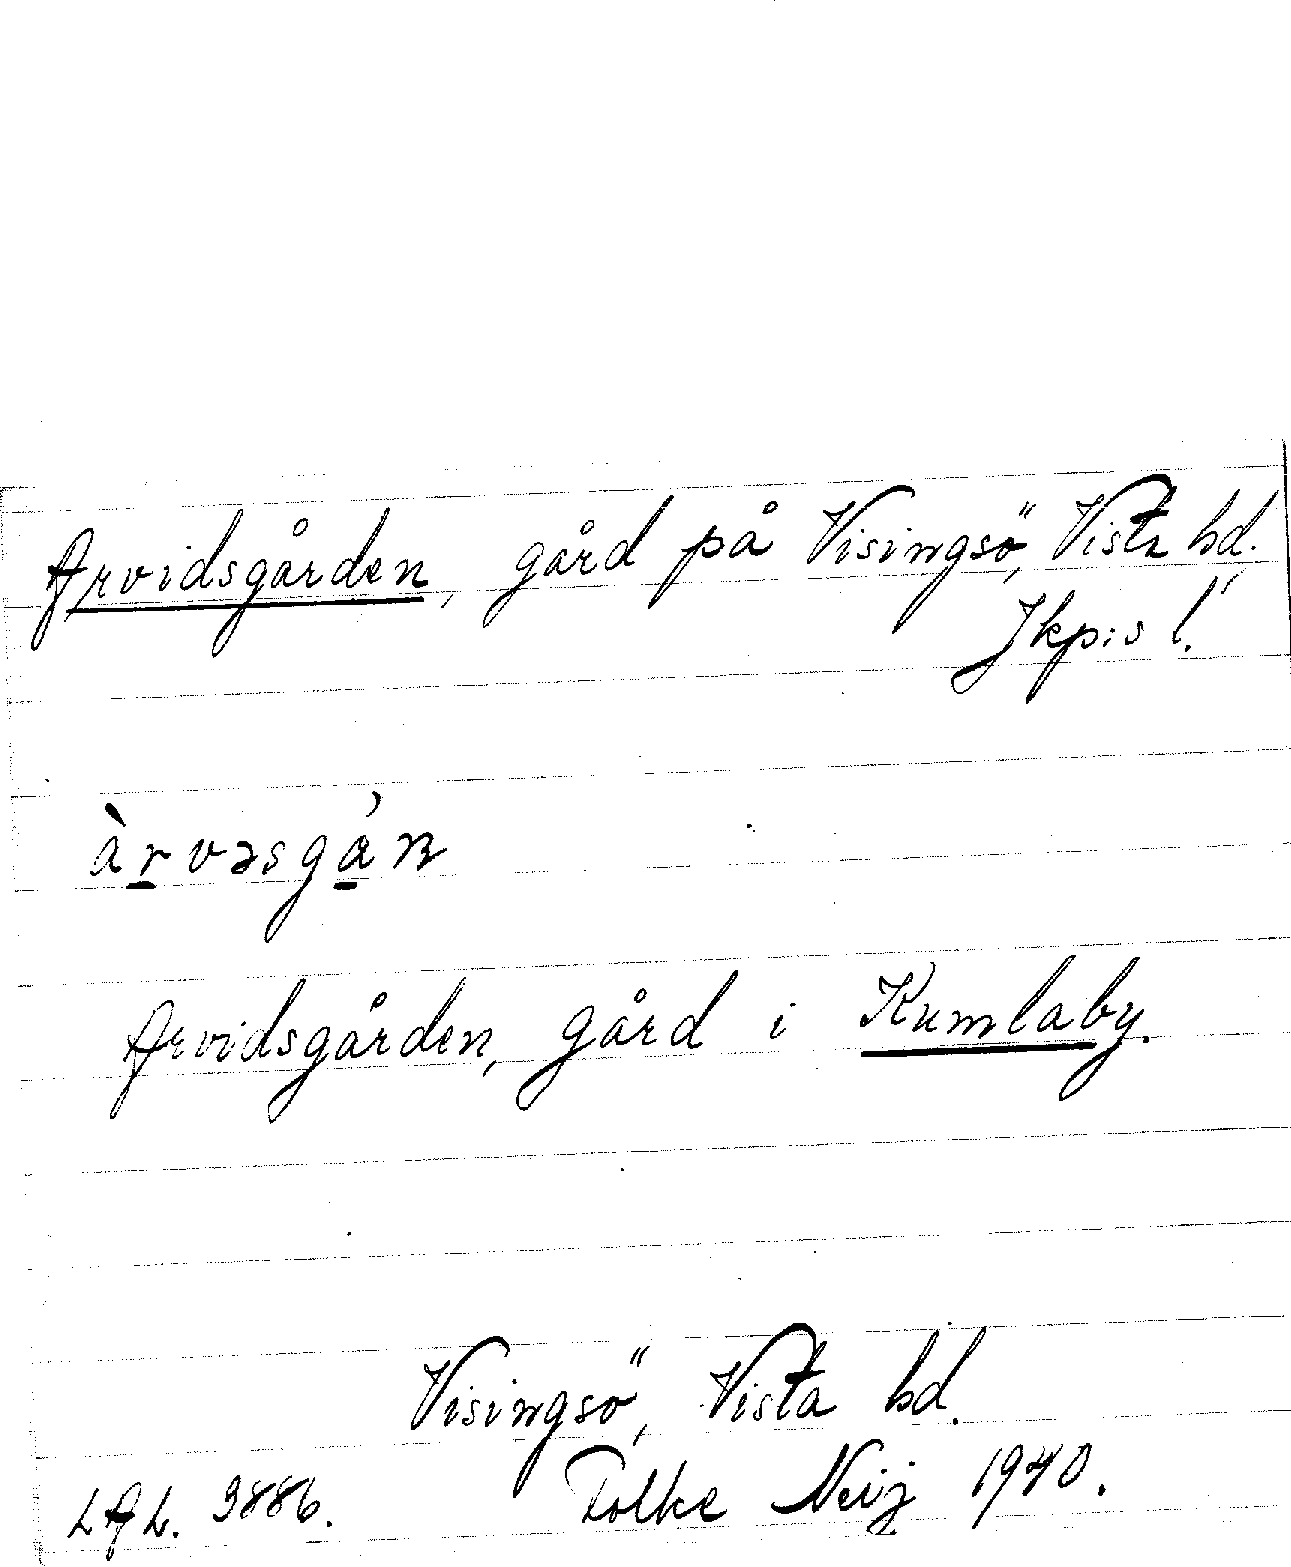 Arvidsgården, gård på Visingsö, Vista hd.,
Jkp:s l.
àr̲vəsgá̲n
Arvidsgården, gård i Kumlaby.
Visingsö, Vista hd.
LAL. 3886. Folke Neij 1940.